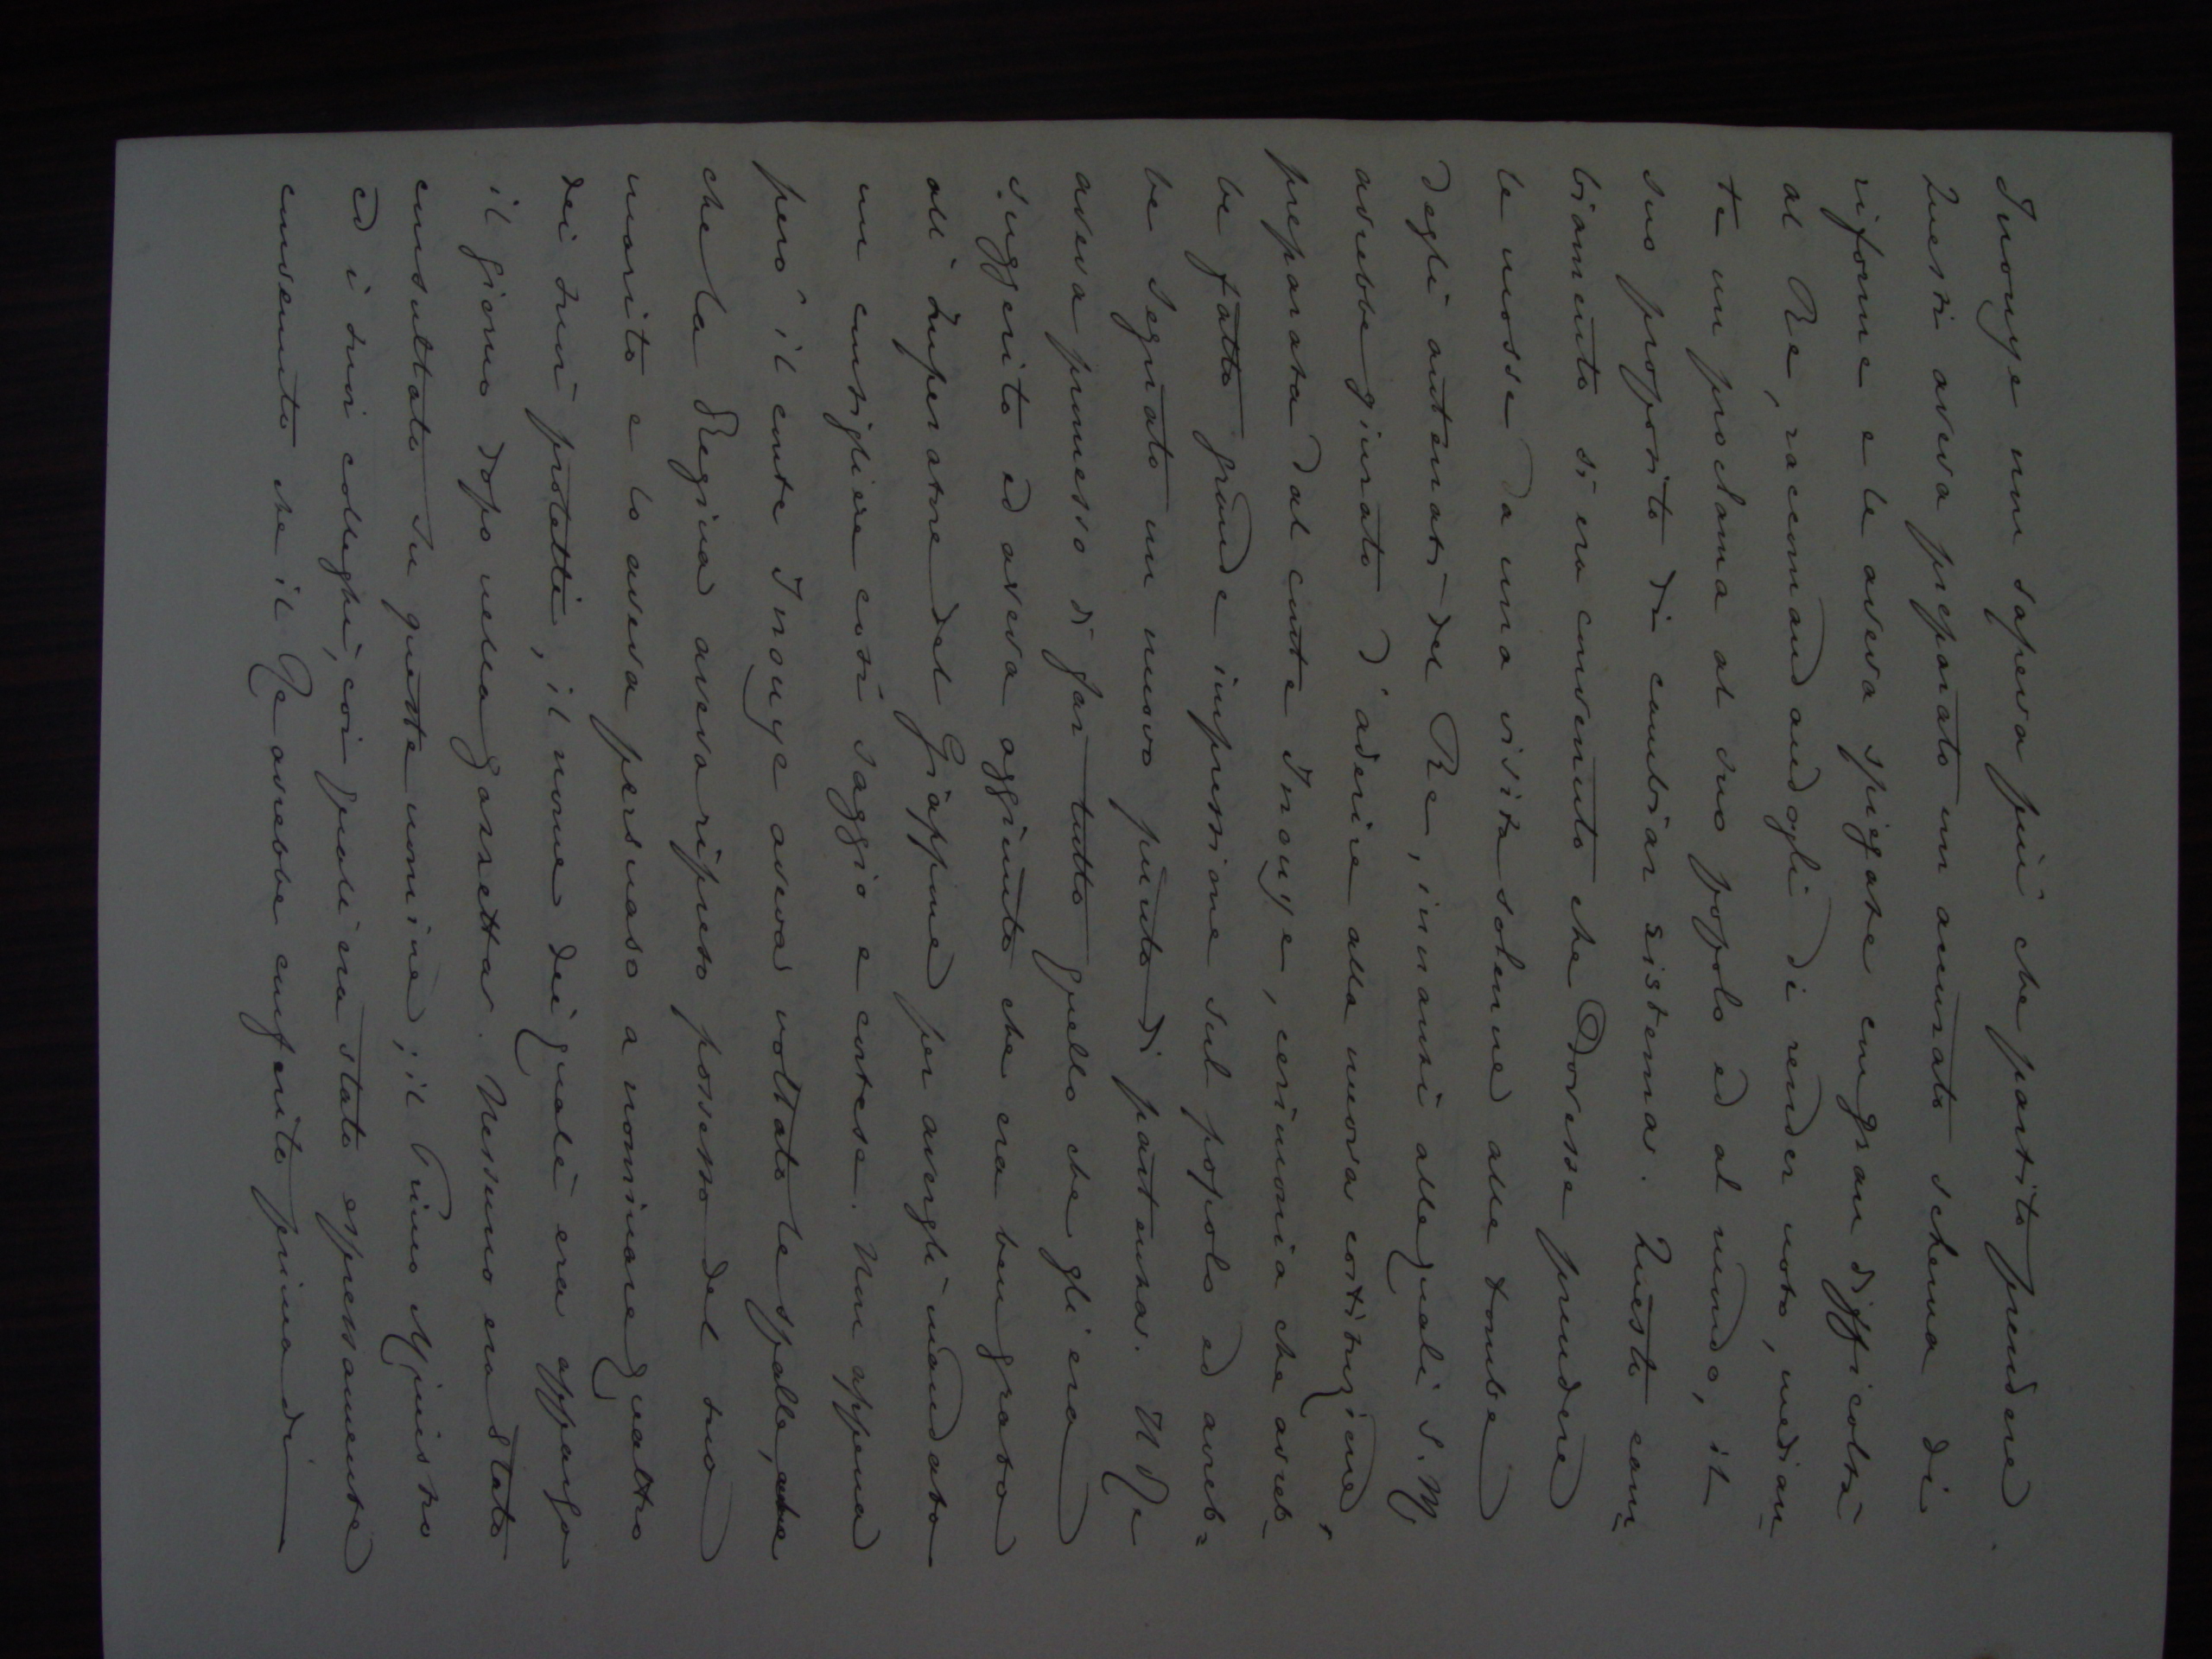 Inouye non sapeva più che partito prendere.
Questi aveva preparato un accurato schema di
riforme e le aveva spiegate con gran difficoltà
al Re, raccomandandogli di render noto, median=
te un proclama al suo popolo ed al mondo, il
suo proposito di cambiar sistema. Questo cam=
biamento si era convenuto che dovesse prendere
le mosse da una visita solenne alle tombe
degli antenati del Re, innanzi alle quali S. M.
avrebbe giurato d'aderire alla nuova costituzione,
preparata dal conte Inouye, cerimonia che avreb=
be fatto grande impressione sul popolo ed avreb=
be segnato un nuovo punto di partenza. Il Re
aveva promesso di far tutto quello che gli era
suggerito ed aveva aggiunto che era ben grato
all'Imperatore del Giappone per avergli mandato
un consigliere così saggio e cortese. Non appena
però il conte Inouye aveva voltato le spalle,
che la Regina aveva ripreso possesso del suo
marito e lo aveva persuaso a nominare quattro
dei suoi protetti, il nome dei quali era apparso
il giorno dopo nella gazzetta. Nessuno era stato
consultato su queste nomine; il Primo Ministro
ed i suoi colleghi, coi quali era stato espressamente
convenuto che il Re avrebbe conferito prima di